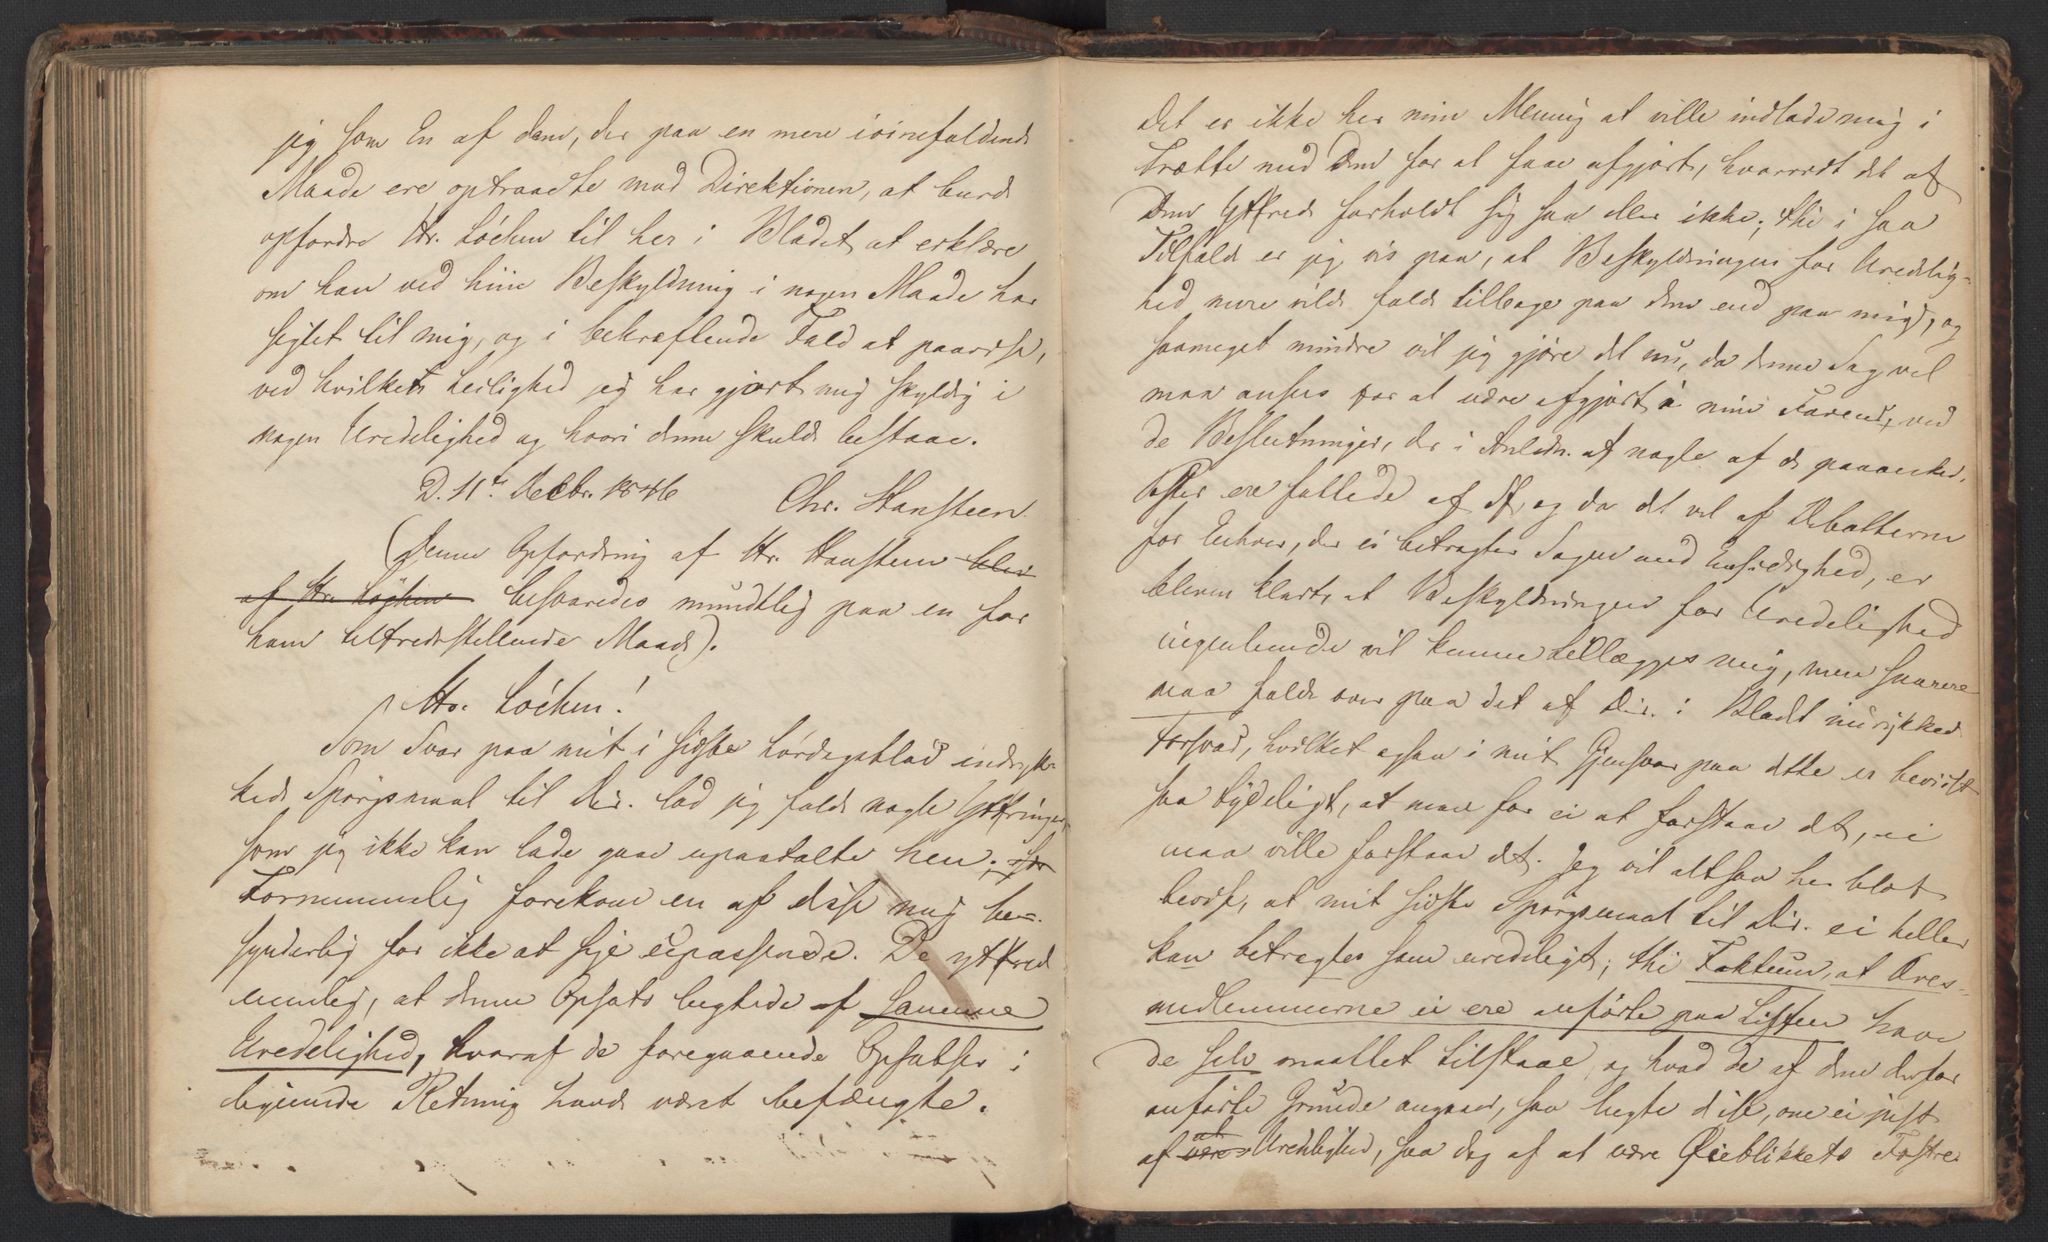 jeg som En af dem, der paa en mere iøinefaldende
Maade ere optraadte mod Direktionen, at burde
opfordre Hr. Löchen til her i Bladet at erklære
om han ved hiin Beskyldning i nogen Maade har
sigtet til mig, og i bekræftende Fald at paavise,
ved hvilken Leilighed jeg har gjort mig skyldig i
nogen Uredelighed og hvori denne skulde bestaae.
D. 11te Decbr. 1846 Chr. Hansteen
(Denne Opfordring af Hr. Hansteen blev
af Hr. Löchen besvaredes mundtlig paa en for
ham tilfredsstillende Maade).
Hr. Löchen!
Som Svar paa mit i sidste Lördagsblad indryk-
kede Spörgsmaal til Dir. lod jeg falde nogle Yttringer,
som jeg ikke kan lade gaae upaatalte hen; for
Fornemmelig forekom en af disse mig be-
synderlig for ikke at sige upassende. De yttrede
nemlig, at denne Opsats lugtede af samme
Uredelighed, hvoraf de foregaaende Opsatser i
lignende Retning havde været befængte.
Det er ikke her min Mening at ville indlade mig i
Trætte med Dem for at faae afgjort, hvorvidt det af
Dem Yttrede forholdt sig saa eller ikke; thi i saa
Tilfælde er jeg vis paa, at Beskyldningen for Uredelig-
hed mere vilde falde tilbage paa dem end paa mig, og
saameget mindre vil jeg gjøre det nu, da denne Sag vel
maa ansees for at være afgjort i min Faveur, ved
de Beslutninger, der i Anledn. af nogle af de paaankede
Poster ere fattede af og da det vel af Debatterne
for Enhver, der ei betragter Sagen med Ensidighed, er
bleven klart, at Beskyldningen for Uredelighed
ingenlunde vil kunne tillægges mig, men snarere
maa falde over paa det af Dir. i Bladet indrykkede
Forsvar, hvilket ogsaa i mit Gjensvar paa dette er beviist
saa tydeligt, at man for ei at forstaae det, ei
maa ville forstaae det. Jeg vil altsaa her blot
bevise, at mit sidste Spörgsmaal til Dir. ei heller
kan betragtes som uredeligt; thi Faktum, at Æres-
medlemmerne ei ere anförte paa Listen have
de selv maattet tilstaae, og hvad de af dem derfor
anførte Grunde angaaer, saa lugte disse, om ei just
af at være Uredelighed, saa dog af at være Øieblikkets Fostre